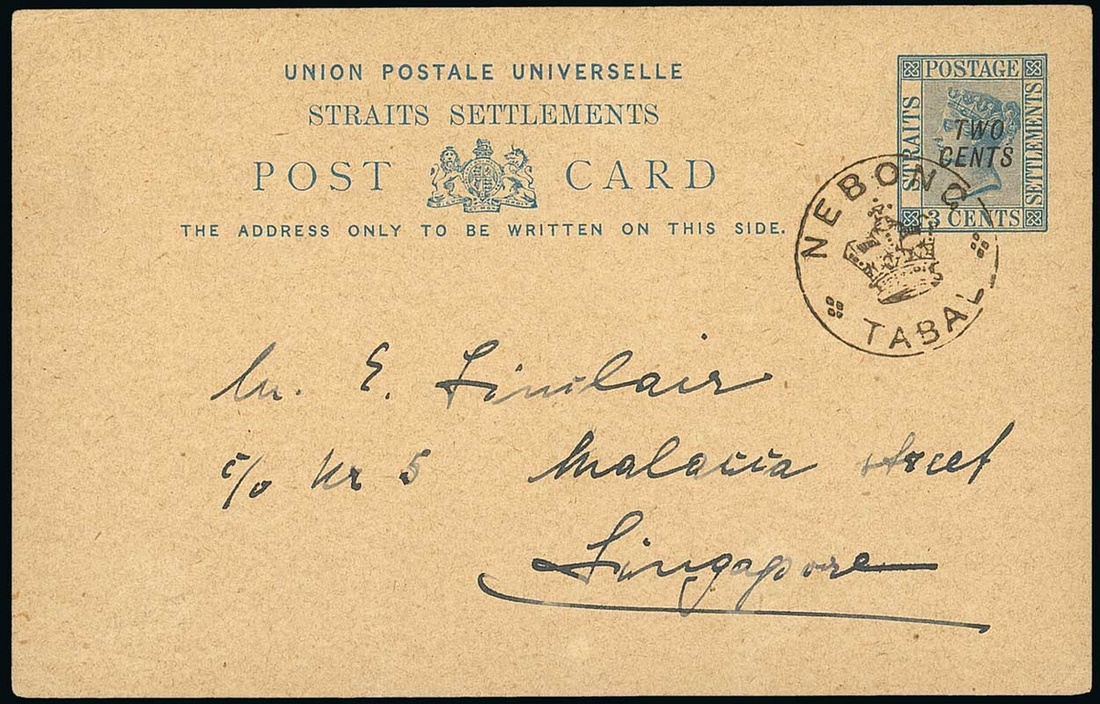 UNION POSTALE UNIVERSELLE
STRAITS SETTLEMENTS
POST CARD
THE ADDRESS ONLY TO BE WRITTEN ON THIS SIDE.
POSTAGE
STRAITS
SETTLEMENTS
TWO
CENTS
3 CENTS
NEBONG
TABAL
Mr. E. Sinclair
c/o Nr 5 Malacca Street
Singapore